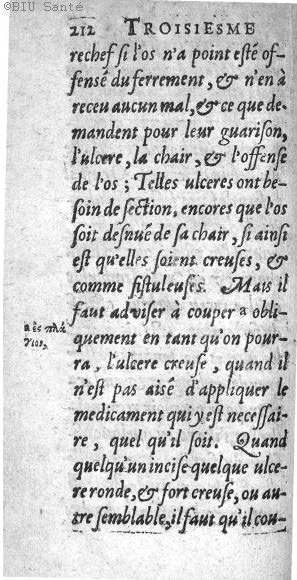 ©BIU Santé
212 TROISIESME
rechef si l'os n'a point esté of-
fensé du ferrement, & n'en à
receu aucun mal, & ce que de-
mandent pour leur guarison,
l'ulcere, la chair, & l'offense
de l'os; Telles ulceres ont be-
soin de section, encores que l'os
soit desnué de sa chair, si ainsi
est qu'elles soient creuses, &
comme fistuleuses. Mais il
faut adviser à couper a obli-
quement en tant qu'on pour-
ra, l'ulcere creuse, quand il
n'est pas aisé d'appliquer le
medicament qui y est necessai-
re, quel qu'il soit. Quand
quelqu'un incise quelque ulce-
re ronde, & fort creuse, ou au-
tre semblable, il faut qu'il cou-
a ἐς πλά
γιος,